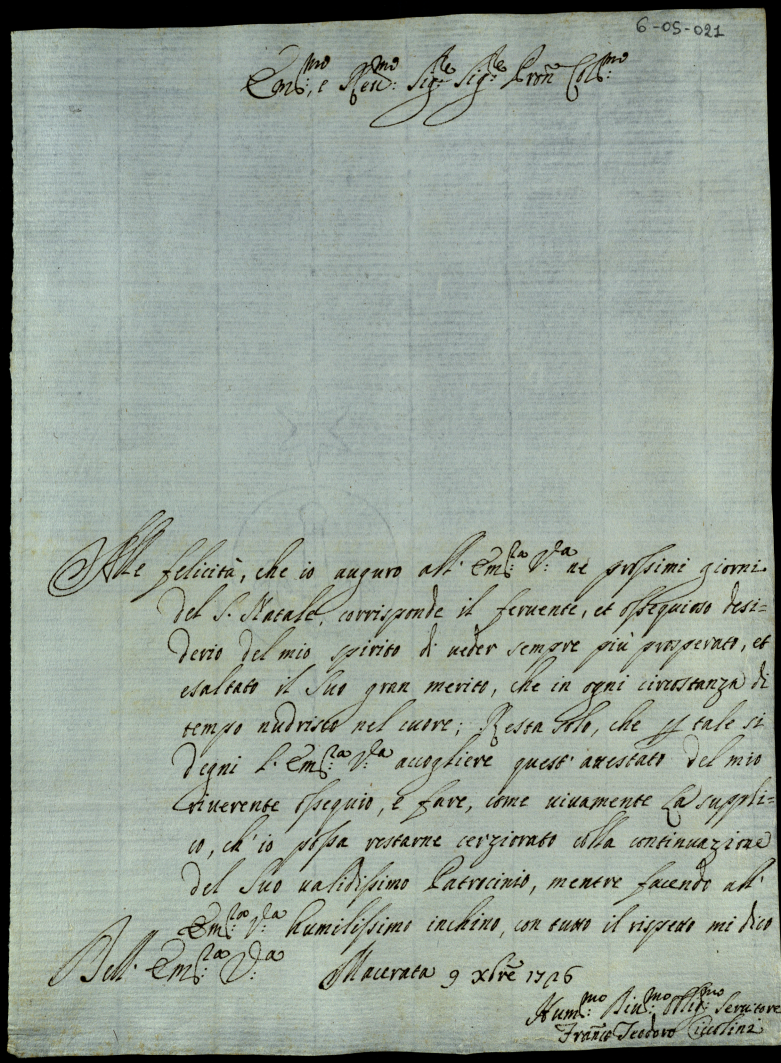 6-05-021
Em.mo, e Reu.mo Sig.re Sig.re Pron Col.mo
Alle felicità, che io auguro all' Em.za V.ra ne prossimi giorni
del S. Natale, corrisponde il feruente, et ossequioso desi=
derio del mio spirito di ueder sempre più prosperato, et
esaltato il Suo gran merito, che in ogni circostanza di
tempo nudrisco nel cuore; Resta solo, che p tale si
degni l' Em.za V.ra accogliere quest' attestato del mio
riuerente ossequio, e fare, come uiuamente La suppli=
co, ch' io possa restarne cerziorato colla continuazione
del Suo ualidissimo Patrocinio, mentre facendo all'
Em.za V.ra humilissimo inchino, con tutto il rispetto mi dico
Dell' Em.za V.ra Macerata 9 Xbre 1726
Hum.mo Diu.mo Oblig.mo Seruitore
Franco Teodoro Ciccolini